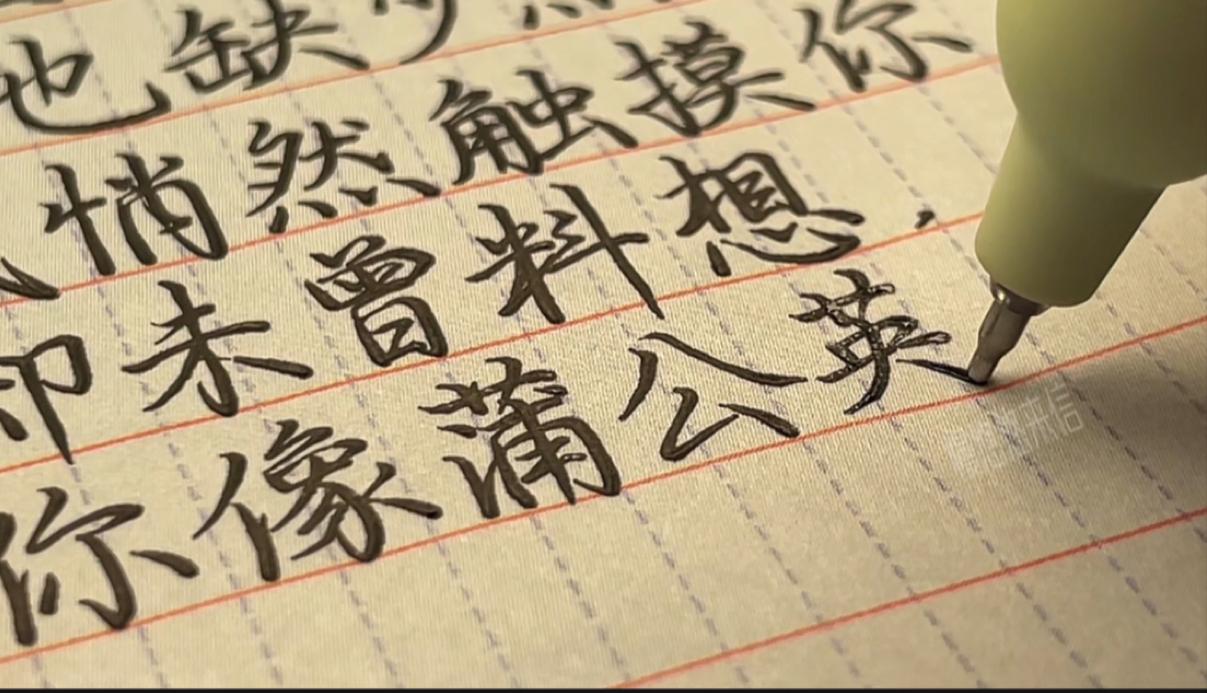 也缺少
悄然触摸你
却未曾料想,
你像蒲公英
来信